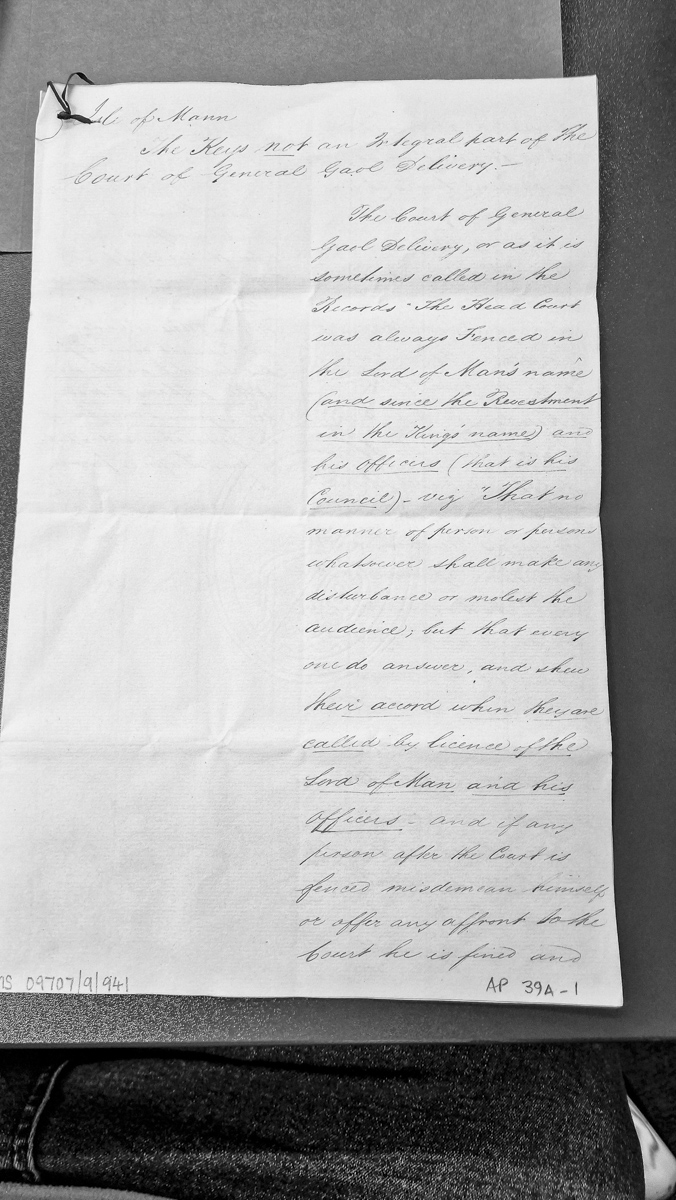 Isle of Mann
The Keys not an Integral part of The
Court of General Gaol Delivery.—
The Court of General
Gaol Delivery, or as it is
sometimes called in the
Records "The Head Court
was always Fenced in
the Lord of Man's name
(and since the Revestment
in the King's name) and
his Officers (that is his
Council) – viz "That no
manner of person or persons
whatsoever shall make any
disturbance or molest the
audience; but that every
one do answer, and shew
their accord when they are
called by licence of the
Lord of Man and his
Officers – and if any
person after the Court is
fenced misdemean himself
or offer any affront to the
Court he is fined and
MS 09707/9/941
AP 39A-1